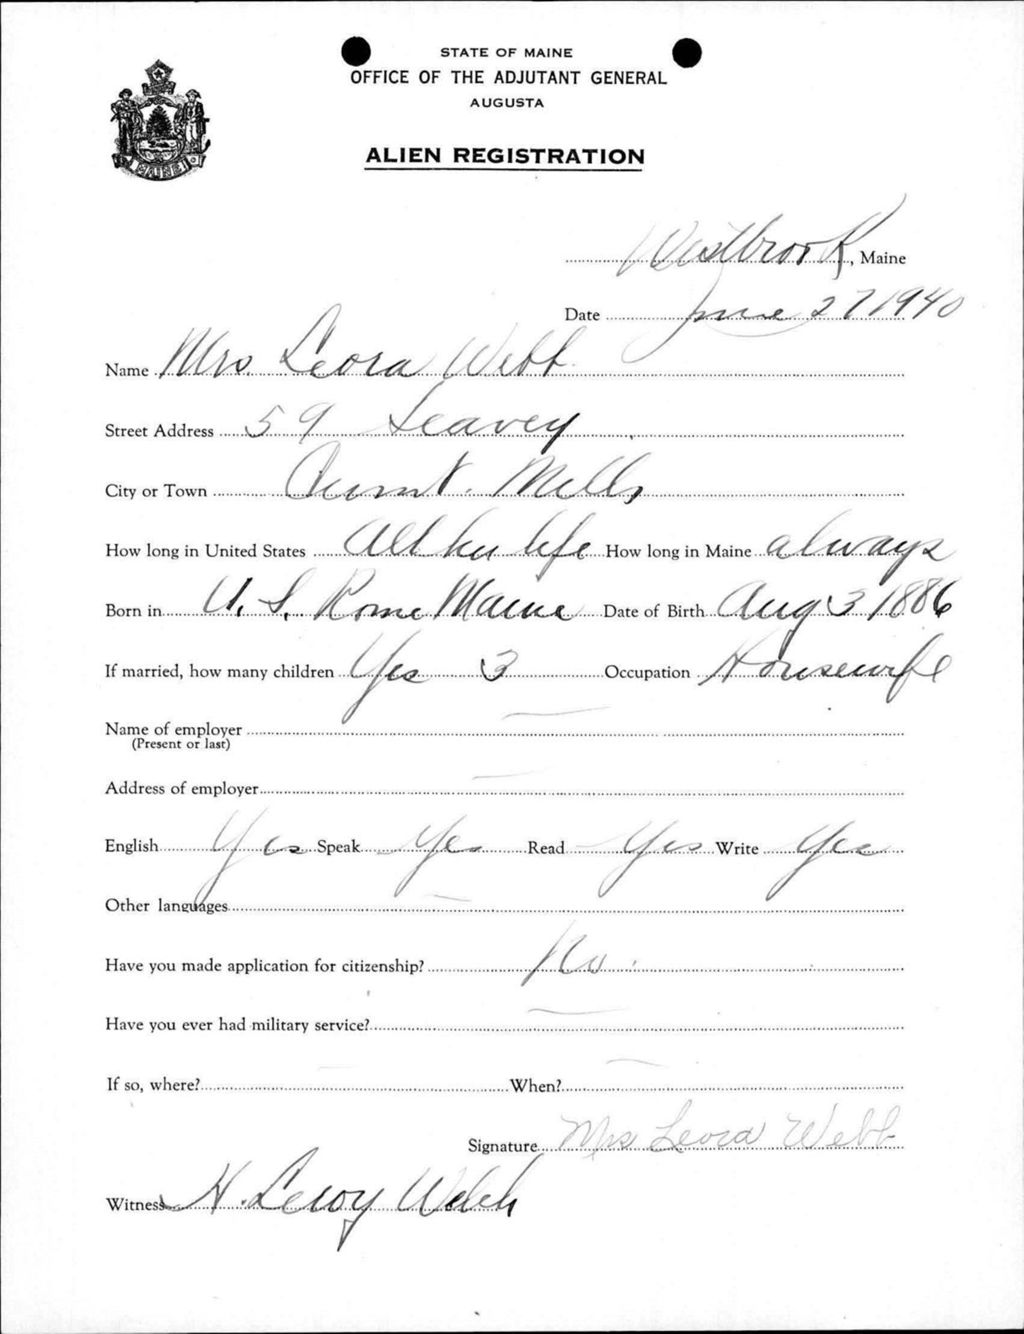 STATE OF MAINE
OFFICE OF THE ADJUTANT GENERAL
AUGUSTA
ALIEN REGISTRATION
MAINE
Westbrook, Maine
Date June 27 1940
Name Mrs. Leora Webb
Street Address 59 Seavey
City or Town Cumb. Mills
How long in United States All her life How long in Maine always
Born in U. S. Rome Maine Date of Birth Aug 3 1886
If married, how many children Yes 3 Occupation Housewife
Name of employer —
(Present or last)
Address of employer —
English Yes Speak Yes Read Yes Write Yes
Other languages —
Have you made application for citizenship? No.
Have you ever had military service? —
If so, where? — When? —
Signature Mrs Leora Webb
Witness H. Leroy Welch